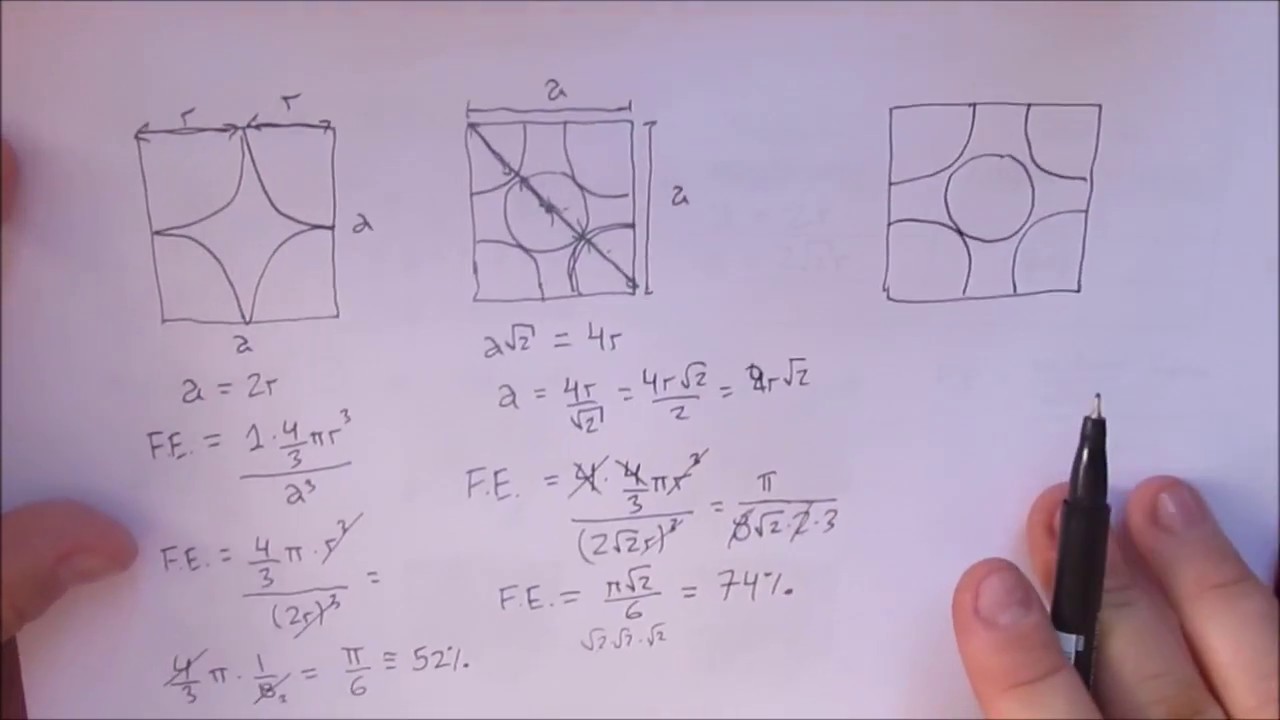 r r
a
a
a = 2r
F.E. = 1 · 4/3 πr³ / a³
F.E. = 4/3 π · r³ / (2r)³ =
4/3 π · 1/8₂ = π/6 ≅ 52%
a
a
a√2 = 4r
a = 4r/√2 = 4r√2/2 = 2r√2
F.E. = 4 · 4/3 πr³ / (2√2r)³ = π / 8√2·2·3
F.E. = π√2/6 = 74%
√2·√2·√2